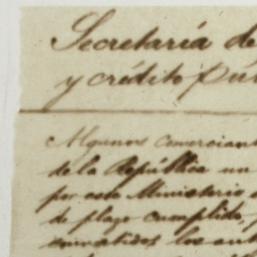 Secretaría de
y crédito Pú
Algunos comercian
de la República un
por este Ministerio
de plazo cumplido,
los